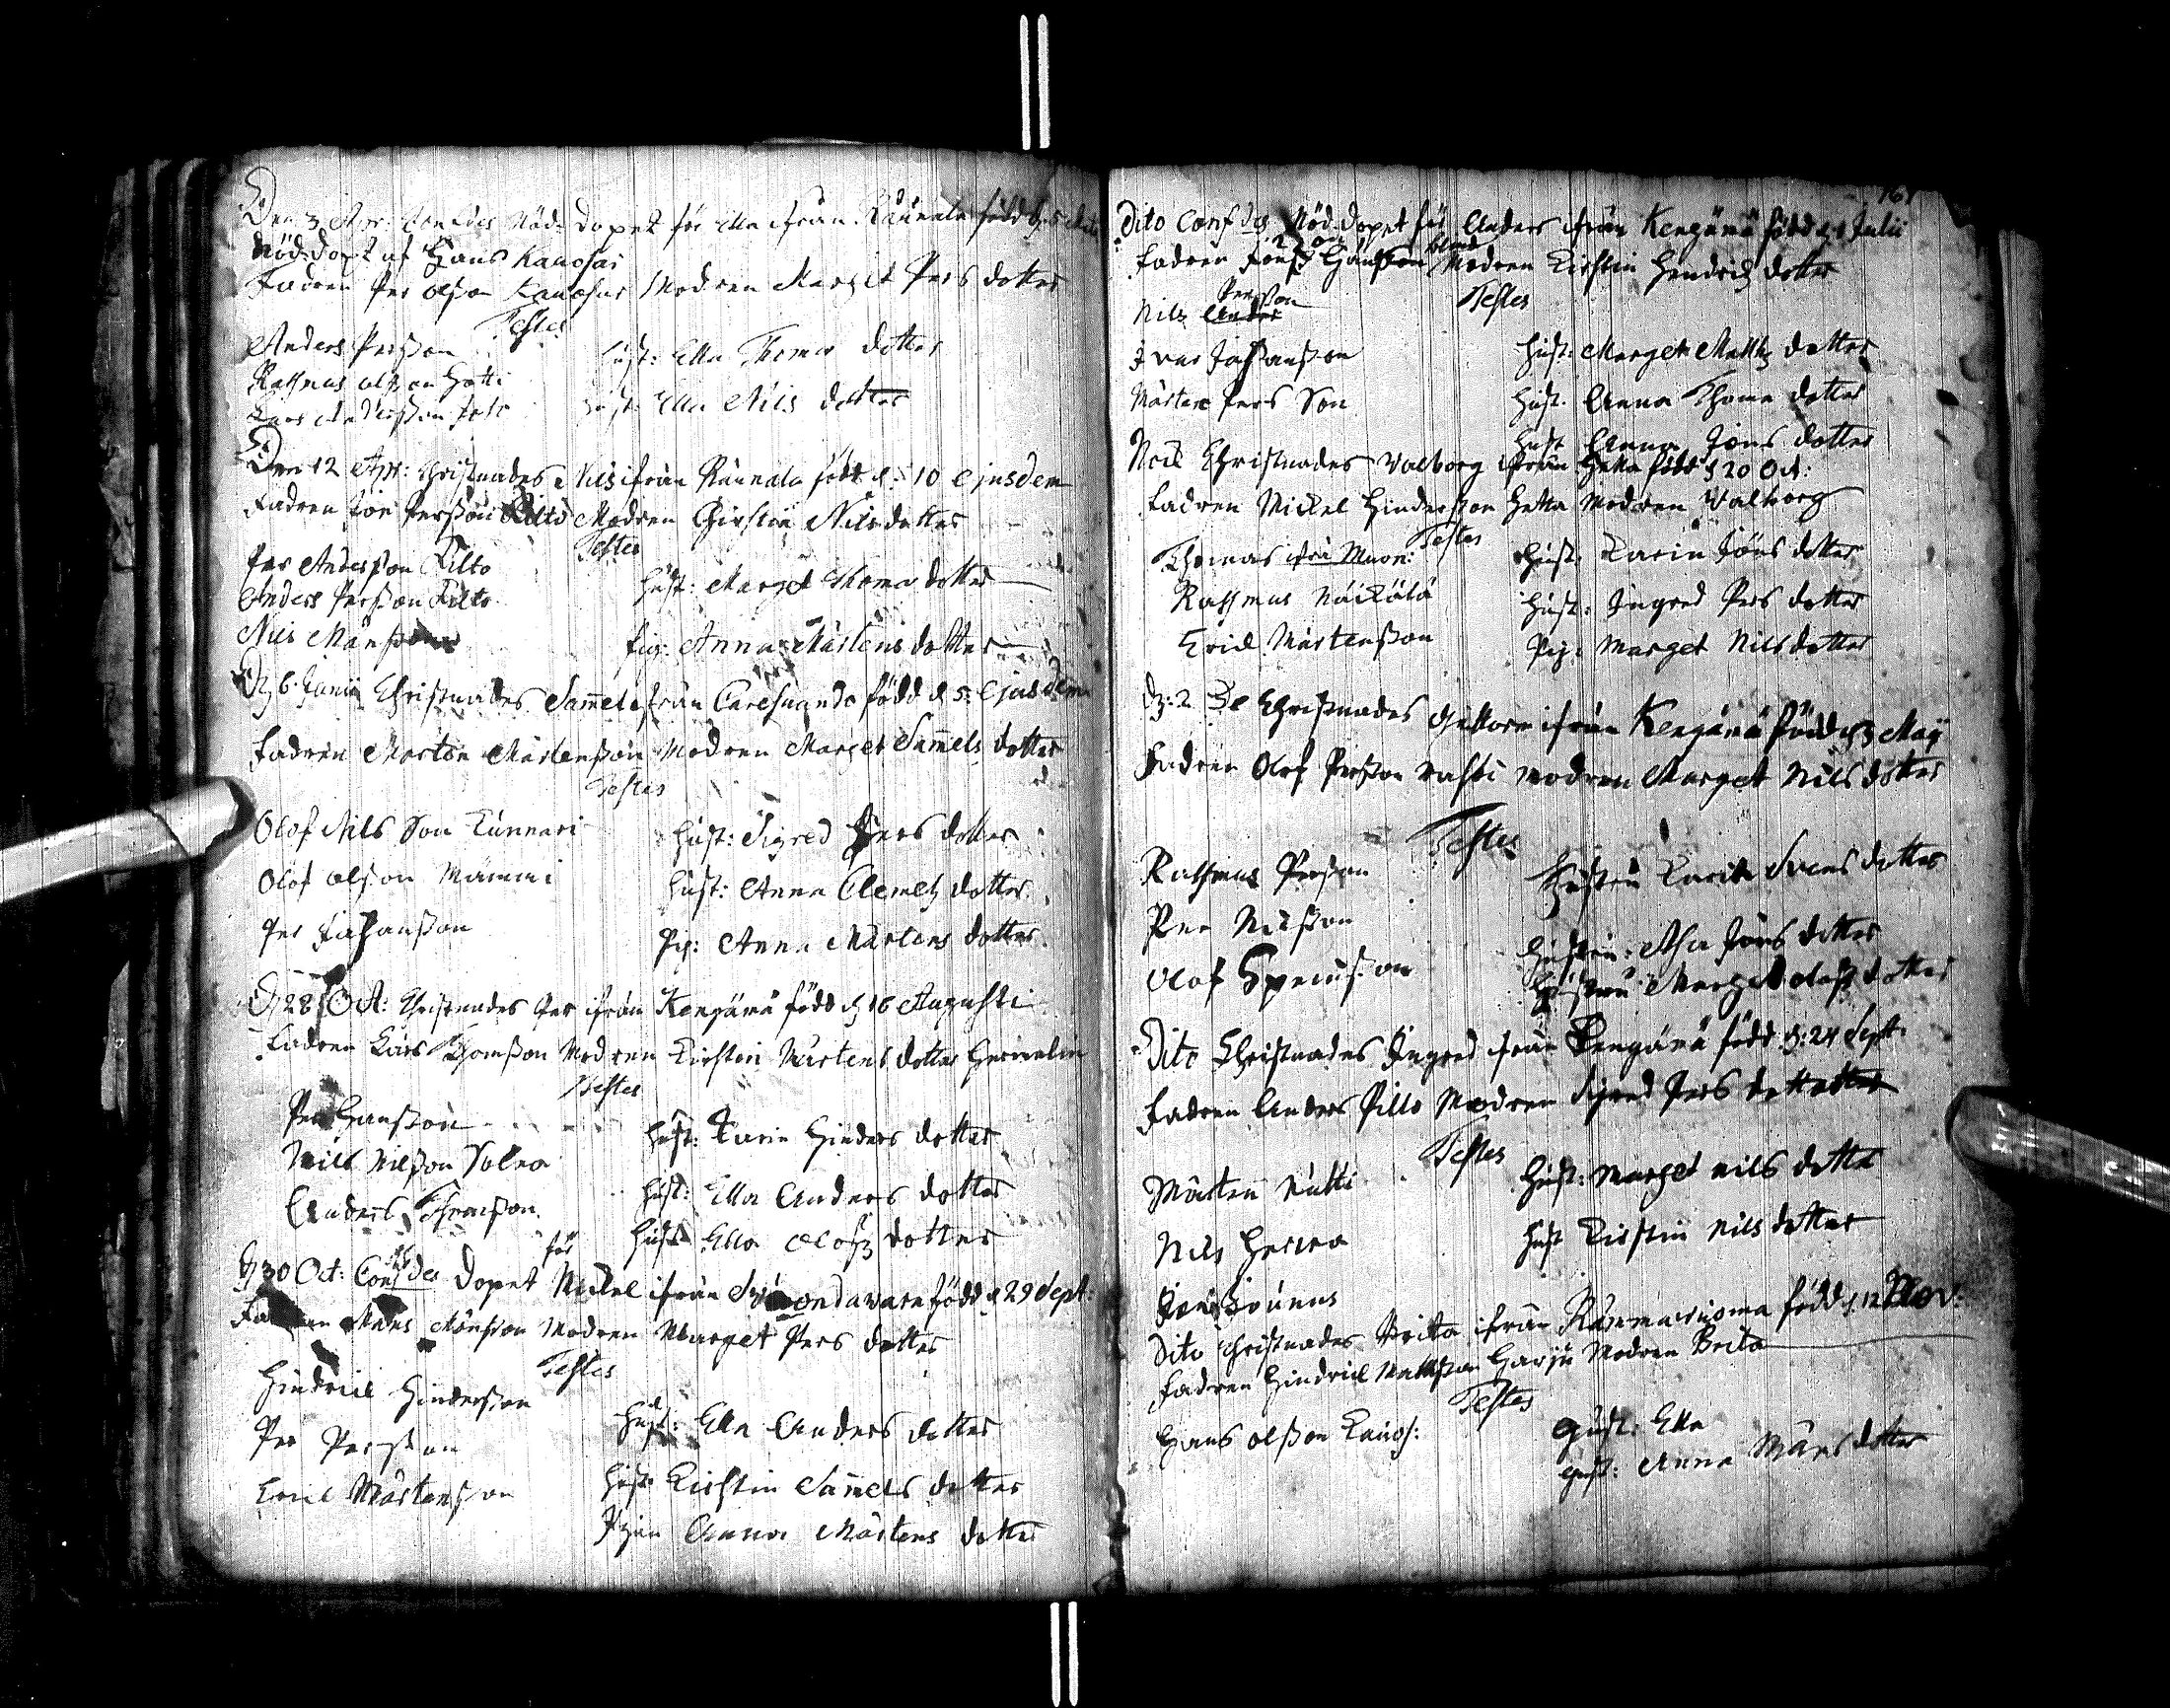 Den 3 Apr: Confdes Nöd-dopet för Ella ifrån Raunala född
Nöd-döpt af Hans Kanosai
Fadren Per Olsson Kanosus Modren Marget Pers dotter
Testes
Anders Persson
Hust: Ella Thomæ dotter
Rassmus Olsson Hotti
Hust: Ella Nils dotter
Lars Andersson
Den 12 Apr: Christnades Nils ifrån Raunala född d: 10 Ejusdem
Fadren Jon Persson Kilto Modren Chirstin Nils dotter
Testes
Per Andersson Kilto
Hust: Marget Thomæ dotter
Anders Persson Kilto
Nils Månsson
Pig: Anna Mårtens dotter
D 6 Junii Christnades Sammel ifrån Caresuando född d 5: Ejusdem
Fadren Morten Mårtensson Modren Marget Sammels dotter
Testes
Olof Nils Son Kunnari
Hust: Sigred Pers dotter
Olof Olsson Mämmi
Hust: Anna Clemetz dotter
Per Johansson
Pig: Anna Mårtens dotter
D 28 Oct: Christnades Per ifrån Kengämä född d 16 Augusti
Fadren Lars Thomsson Modren Kirstin Mårtens dotter
Testes
Per Hansson
Hust: Karin Hinders dotter
Nils Nilsson
Hust: Ella Anders dotter
Anders Thomsson
Hust: Ella Olofz dotter
D 30 Oct: Confdes Dopet för Mickel ifrån född d 29 Sept:
Fadren Måns Månsson Modren Marget Pers dotter
Testes
Hindrick Hindersson
Hust: Ella Anders dotter
Per Persson
Hust: Kirstin Sammels dotter
Erick Mårtensson
Pigan Anna Mårtens dotter
161
Dito Confdes Nöd-dopet för Anders ifrån Kengämä född d 1 Julii
Fadren Jöns Hansson Modren Kirstin Hendrichz dotter
Testes
Nils Persson
Ivar Johansson
Hust: Marget Matthz dotter
Mårten Pers Son
Hust: Anna Thomæ dotter
Hust Anna Jöns dotter
Noch Christnades Valborg ifrån Hetta född d 20 Oct:
Fadren Mickel Hindersson Hetta Modren Valborg
Testes
Thomas ifrå Muon:
Hust: Karin Jöns dotter
Rassmus Näckälä
Hust: Ingred Pers dotter
Erick Mårtensson
Pig: Marget Nils dotter
D: 2 De Christnades ifrån Kengämä född d 3 Maij
Fadren Olof Persson Vasti Modren Marget Nils dotter
Testes
Rassmus Persson
Hustru Karin Svens dotter
Per Nilsson
Hustru: Asa Jöns dotter
Olof
Hustru Marget Olofz dotter
Dito Christnades Ingred ifrån Kengämä född d: 24 Sept:
Fadren Anders Pilto Modren Sigred Pers dotter
Testes
Mårten Nutti
Hust: Marget Nils dotter
Nils
Hust Kirstin Nils dotter
Dito Christnades Brita ifrån född d 12 Nov:
Fadren Hindrick Mattsson Harju Modren Brita
Testes
Hans Olsson Kanos:
Hust: Ella
Hust: Anna Måns dotter